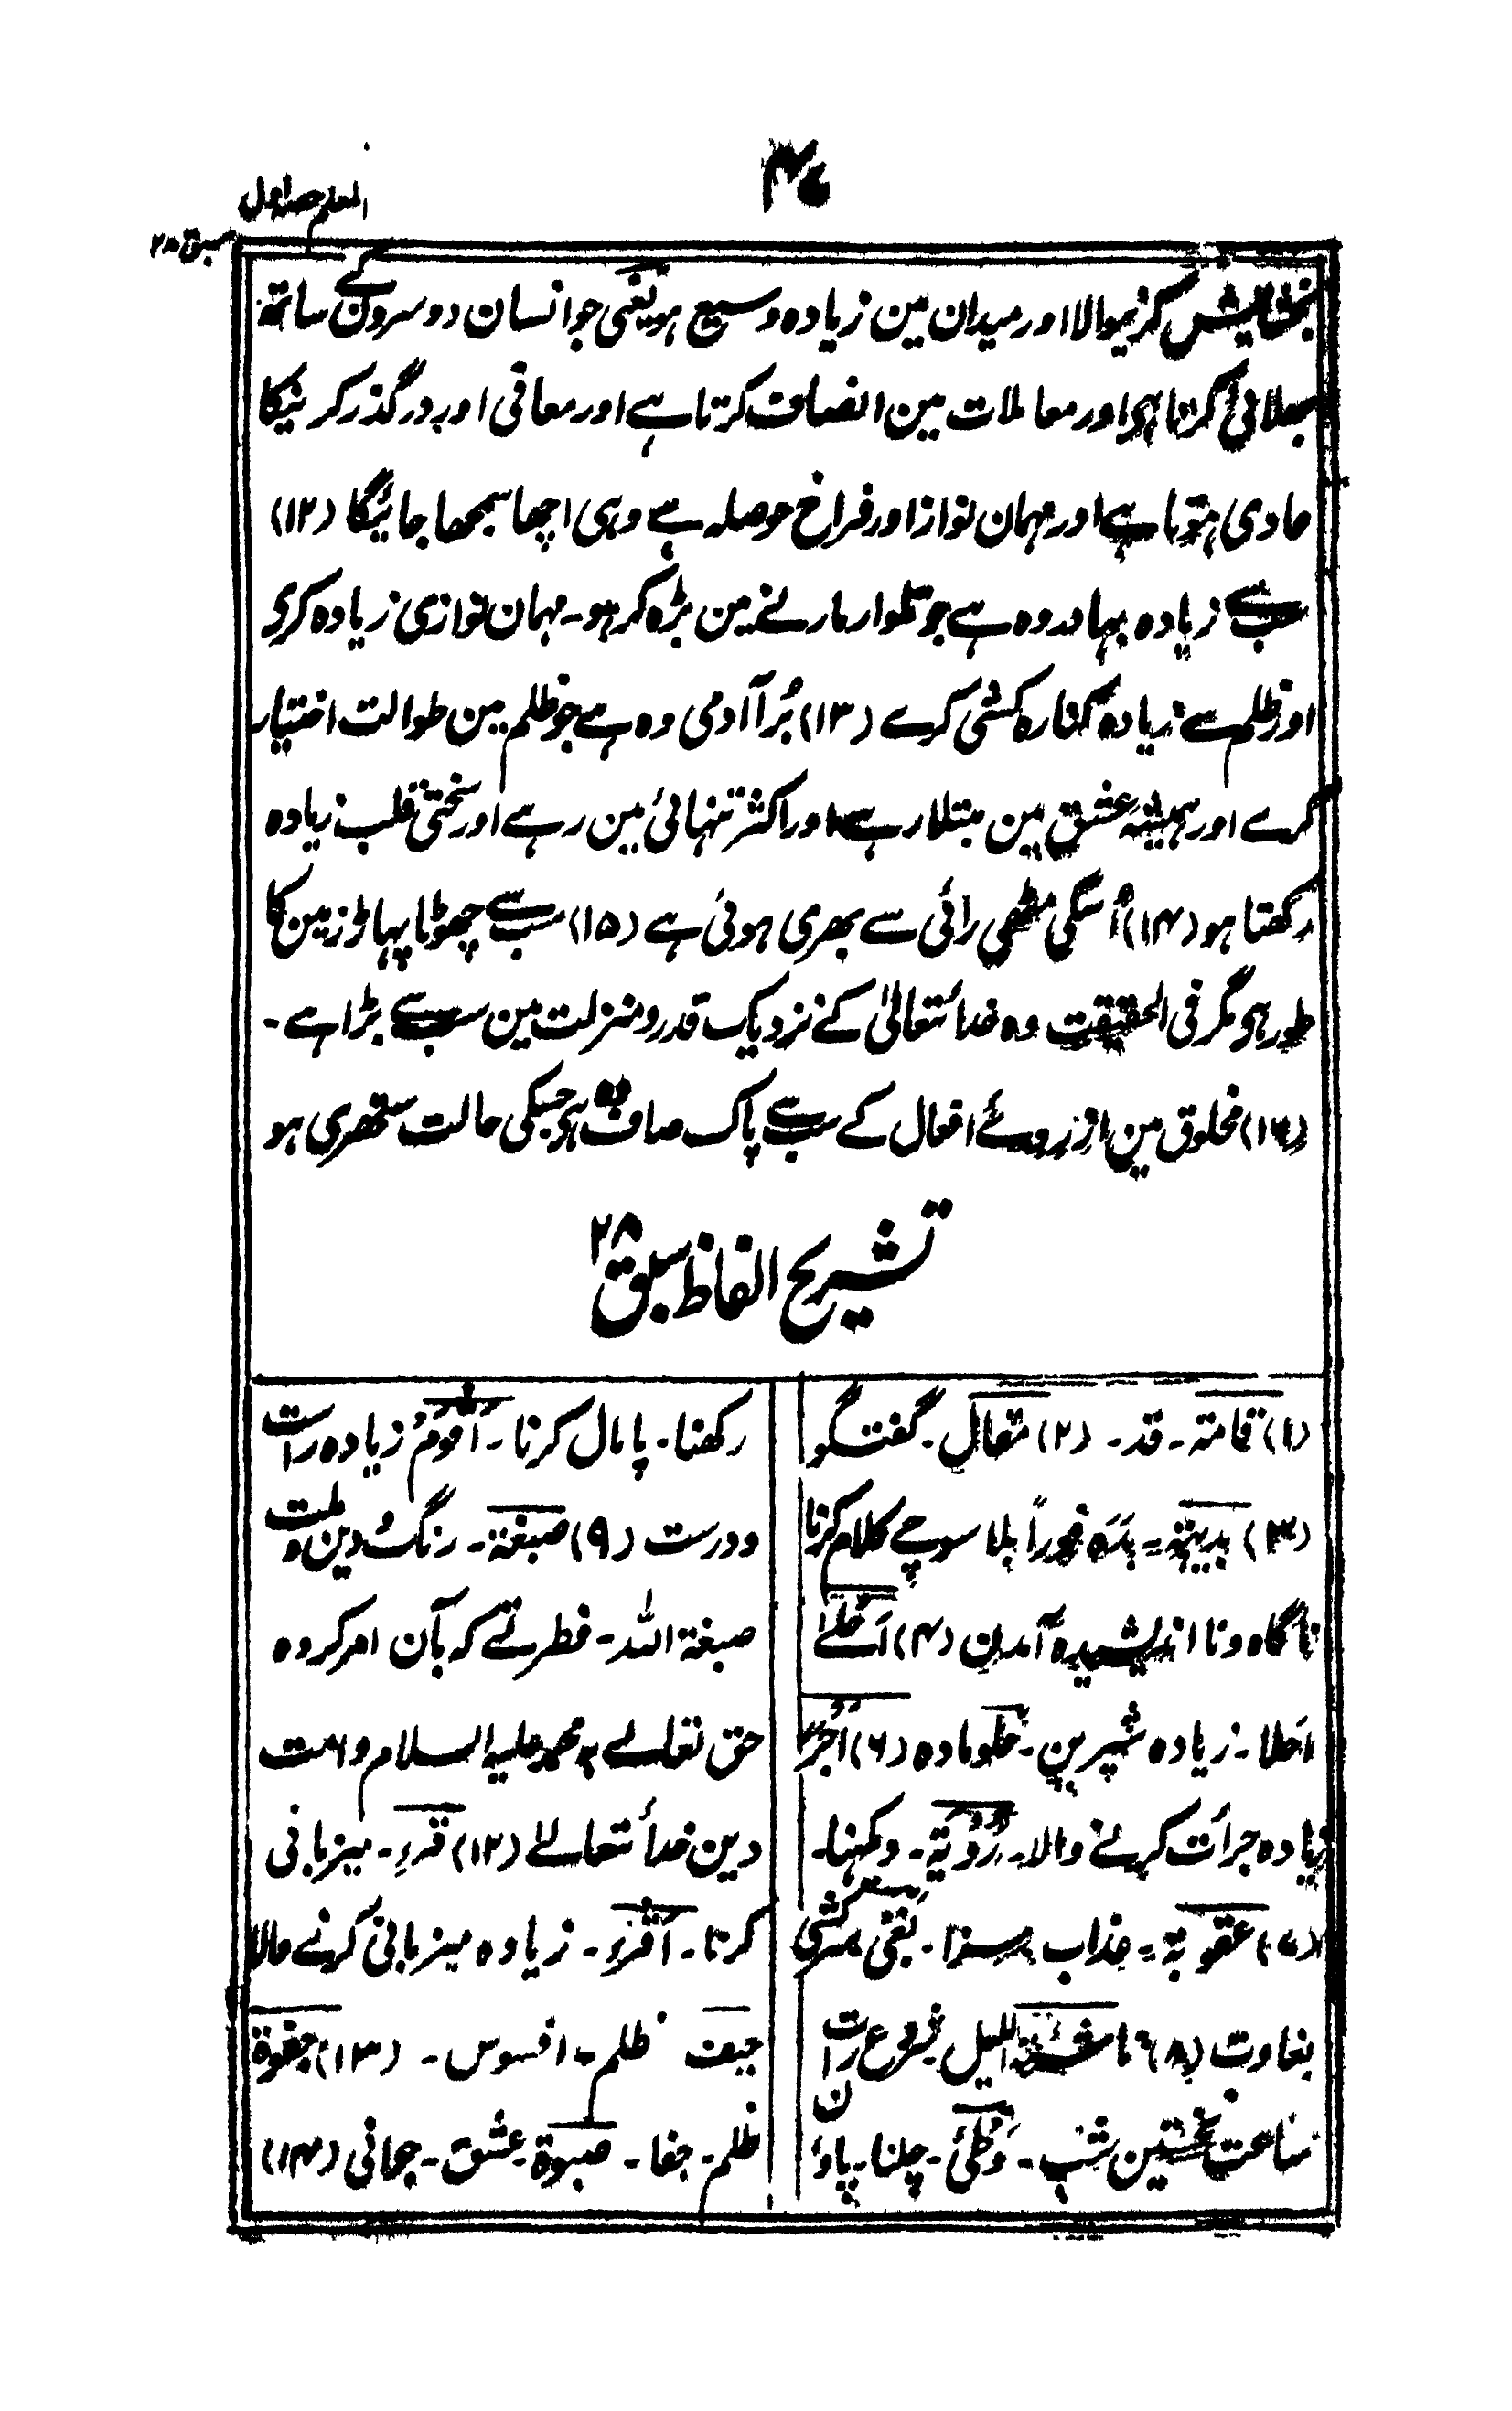 ۴۷
المعلم حصہ اول
سبق ۲۸
بخشایش کرنیوالا اور میدان مین زیادہ وسیع ہو یعنی جو انسان دوسرون کے ساتھ
بھلائی کرتا ہی اور معاملات مین انصاف کرتا ہے اور معافی اور درگذر کرنیکا
عادی ہوتا ہے اور مہمان نواز اور فراخ حوصلہ ہے وہی اچھا سمجھا جائیگا (۱۲)
سب سے زیادہ بہادر وہ ہے جو تلوار مارنے مین بڑھ کر ہو۔ مہمان نوازی زیادہ کری
اور ظلم سے زیادہ کنارہ کشی کرے (۱۳) بُرا آدمی وہ ہے جو ظلم مین طوالت اختیار
کرے اور ہمیشہ عشق مین مبتلا رہے اور اکثر تنہائی مین رہے اور سختی قلب زیادہ
رکھتا ہو (۱۴) اُسکی مٹھی رائی سے بھری ہوئی ہے (۱۵) سب سے چھوٹا پہاڑ زمین کا
طور ہی مگر فی الحقیقت وہ خدائتعالیٰ کے نزدیک قدر و منزلت مین سب سے بڑا ہے۔
(۱۶) مخلوق مین از روئے افعال کے سب سے پاک صاف وہ ہی جسکی حالت ستھری ہو
تشریح الفاظ سبق ۲۸
(۱) قامتہ۔ قد۔ (۲) مقال۔ گفتگو
(۳) بدیہتہ = بَدَہ فوراً بلا سوچے کلام کرنا
ناگاہ و نا اندیشیدہ آمدن (۴) اَحْلےٰ
احلا۔ زیادہ شیرین۔ حلو مادہ (۶) اَجْرَ
زیادہ جرأت کرنے والا۔ رُؤیَۃ۔ دیکھنا۔
(۷) عقوبۃ = عذاب سزا۔ بَغْی سرکشی
بغاوت (۸) ناشئۃ اللیل شروع رات
ساعت نخستین شب۔ وَطْئ۔ چلنا۔ پاؤن
رکھنا۔ پامال کرنا۔ اَقْوَمُ زیادہ راست
و درست (۹) صبغۃ۔ رنگ و دین و ملت
صبغۃ اللہ۔ فطرتے کہ بآن امر کردہ
حق تعالےٰ بہ محمد علیہ السلام و امت
دین خدائتعالےٰ (۱۲) قرء۔ میزبانی
کرنا۔ اَقْرَء۔ زیادہ میزبانی کرنے والا
حیف ظلم۔ افسوس۔ (۱۳) جفوۃ
ظلم۔ جفا۔ صبوۃ۔ عشق۔ جوانی (۱۴)